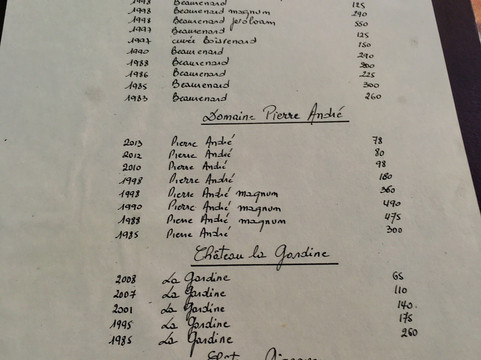 1998 Beaurenard 125
1998 Beaurenard magnum 290
1998 Beaurenard jéroboam 550
1997 Beaurenard 125
1997 cuvée Boisrenard 150
1990 Beaurenard 290
1988 Beaurenard 200
1986 Beaurenard 225
1985 Beaurenard 300
1983 Beaurenard 260
Domaine Pierre André
2013 Pierre André 78
2012 Pierre André 80
2010 Pierre André 98
1998 Pierre André 180
1998 Pierre André magnum 360
1990 Pierre André magnum 490
1988 Pierre André magnum 475
1985 Pierre André 300
Château la Gardine
2008 La Gardine 65
2007 La Gardine 110
2001 La Gardine 140
1995 La Gardine 175
1985 La Gardine 260